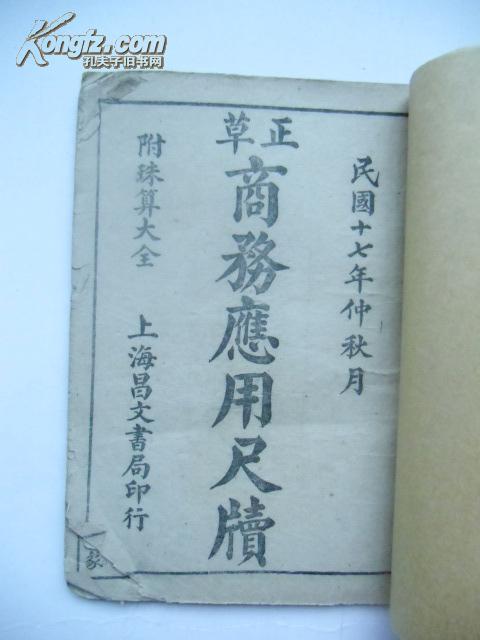 Kongfz.com
孔夫子旧书网
民國十七年仲秋月
正草
商務應用尺牘
附珠算大全
上海昌文書局印行